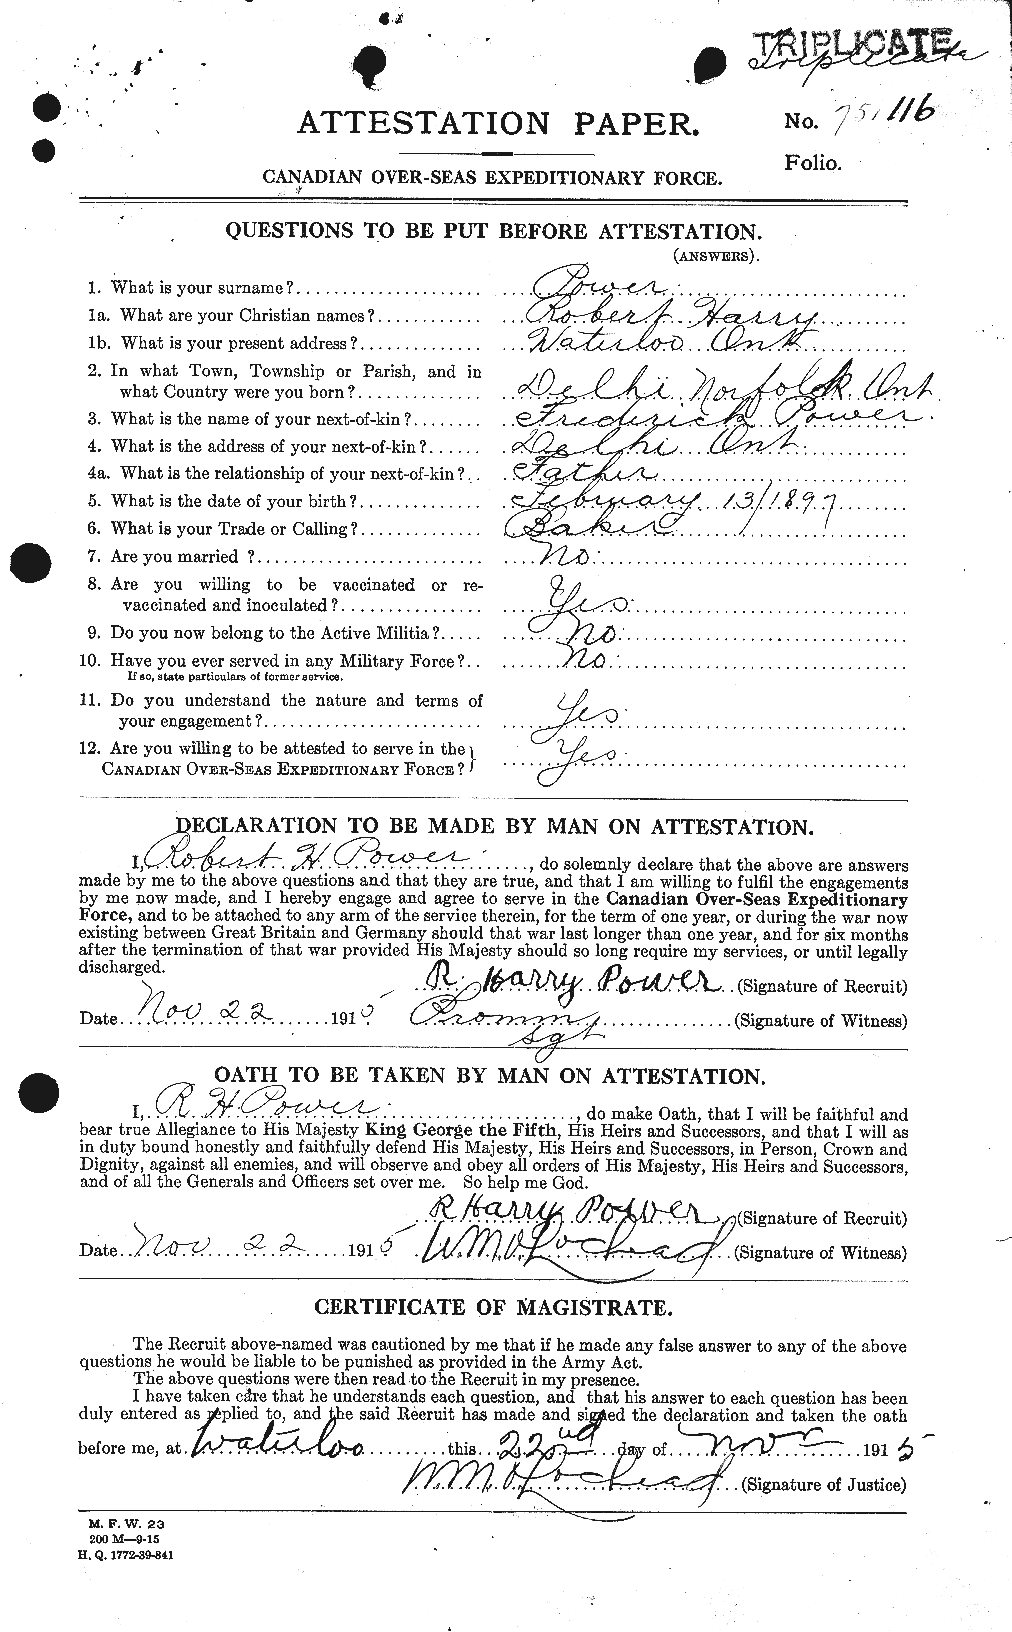 TRIPLICATE
Triplicate
ATTESTATION PAPER.
No. 751116
Folio.
CANADIAN OVER-SEAS EXPEDITIONARY FORCE.
QUESTIONS TO BE PUT BEFORE ATTESTATION.
(ANSWERS).
1. What is your surname?.................... Power
1a. What are your Christian names?............ Robert Harry
1b. What is your present address?............. Waterloo Ont
2. In what Town, Township or Parish, and in
what Country were you born?............. Delhi Norfolk Ont
3. What is the name of your next-of-kin?........ Frederick Power.
4. What is the address of your next-of-kin?...... Delhi Ont.
4a. What is the relationship of your next-of-kin?.. Father
5. What is the date of your birth?............. February 13/1897
6. What is your Trade or Calling?............. Baker
7. Are you married ?......................... No.
8. Are you willing to be vaccinated or re-
vaccinated and inoculated?............... Yes.
9. Do you now belong to the Active Militia?..... No.
10. Have you ever served in any Military Force?.. No.
If so, state particulars of former service.
11. Do you understand the nature and terms of
your engagement?........................ Yes.
12. Are you willing to be attested to serve in the
CANADIAN OVER-SEAS EXPEDITIONARY FORCE? } Yes.
DECLARATION TO BE MADE BY MAN ON ATTESTATION.
I, Robert H Power......, do solemnly declare that the above are answers
made by me to the above questions and that they are true, and that I am willing to fulfil the engagements
by me now made, and I hereby engage and agree to serve in the Canadian Over-Seas Expeditionary
Force, and to be attached to any arm of the service therein, for the term of one year, or during the war now
existing between Great Britain and Germany should that war last longer than one year, and for six months
after the termination of that war provided His Majesty should so long require my services, or until legally
discharged.
R. Harry Power..(Signature of Recruit)
Date. Nov 22.......1915 (Signature of Witness)
Sgt
OATH TO BE TAKEN BY MAN ON ATTESTATION.
I, R H Power......................, do make Oath, that I will be faithful and
bear true Allegiance to His Majesty King George the Fifth, His Heirs and Successors, and that I will as
in duty bound honestly and faithfully defend His Majesty, His Heirs and Successors, in Person, Crown and
Dignity, against all enemies, and will observe and obey all orders of His Majesty, His Heirs and Successors,
and of all the Generals and Officers set over me. So help me God.
R Harry Power (Signature of Recruit)
Date. Nov 22......1915 W. M. O. Lochead (Signature of Witness)
CERTIFICATE OF MAGISTRATE.
The Recruit above-named was cautioned by me that if he made any false answer to any of the above
questions he would be liable to be punished as provided in the Army Act.
The above questions were then read to the Recruit in my presence.
I have taken care that he understands each question, and that his answer to each question has been
duly entered as replied to, and the said Recruit has made and signed the declaration and taken the oath
before me, at Waterloo..........this 22nd day of Novr 1915
W. M. O. Lochead (Signature of Justice)
M. F. W. 23
200 M—9-15
H. Q. 1772-39-841